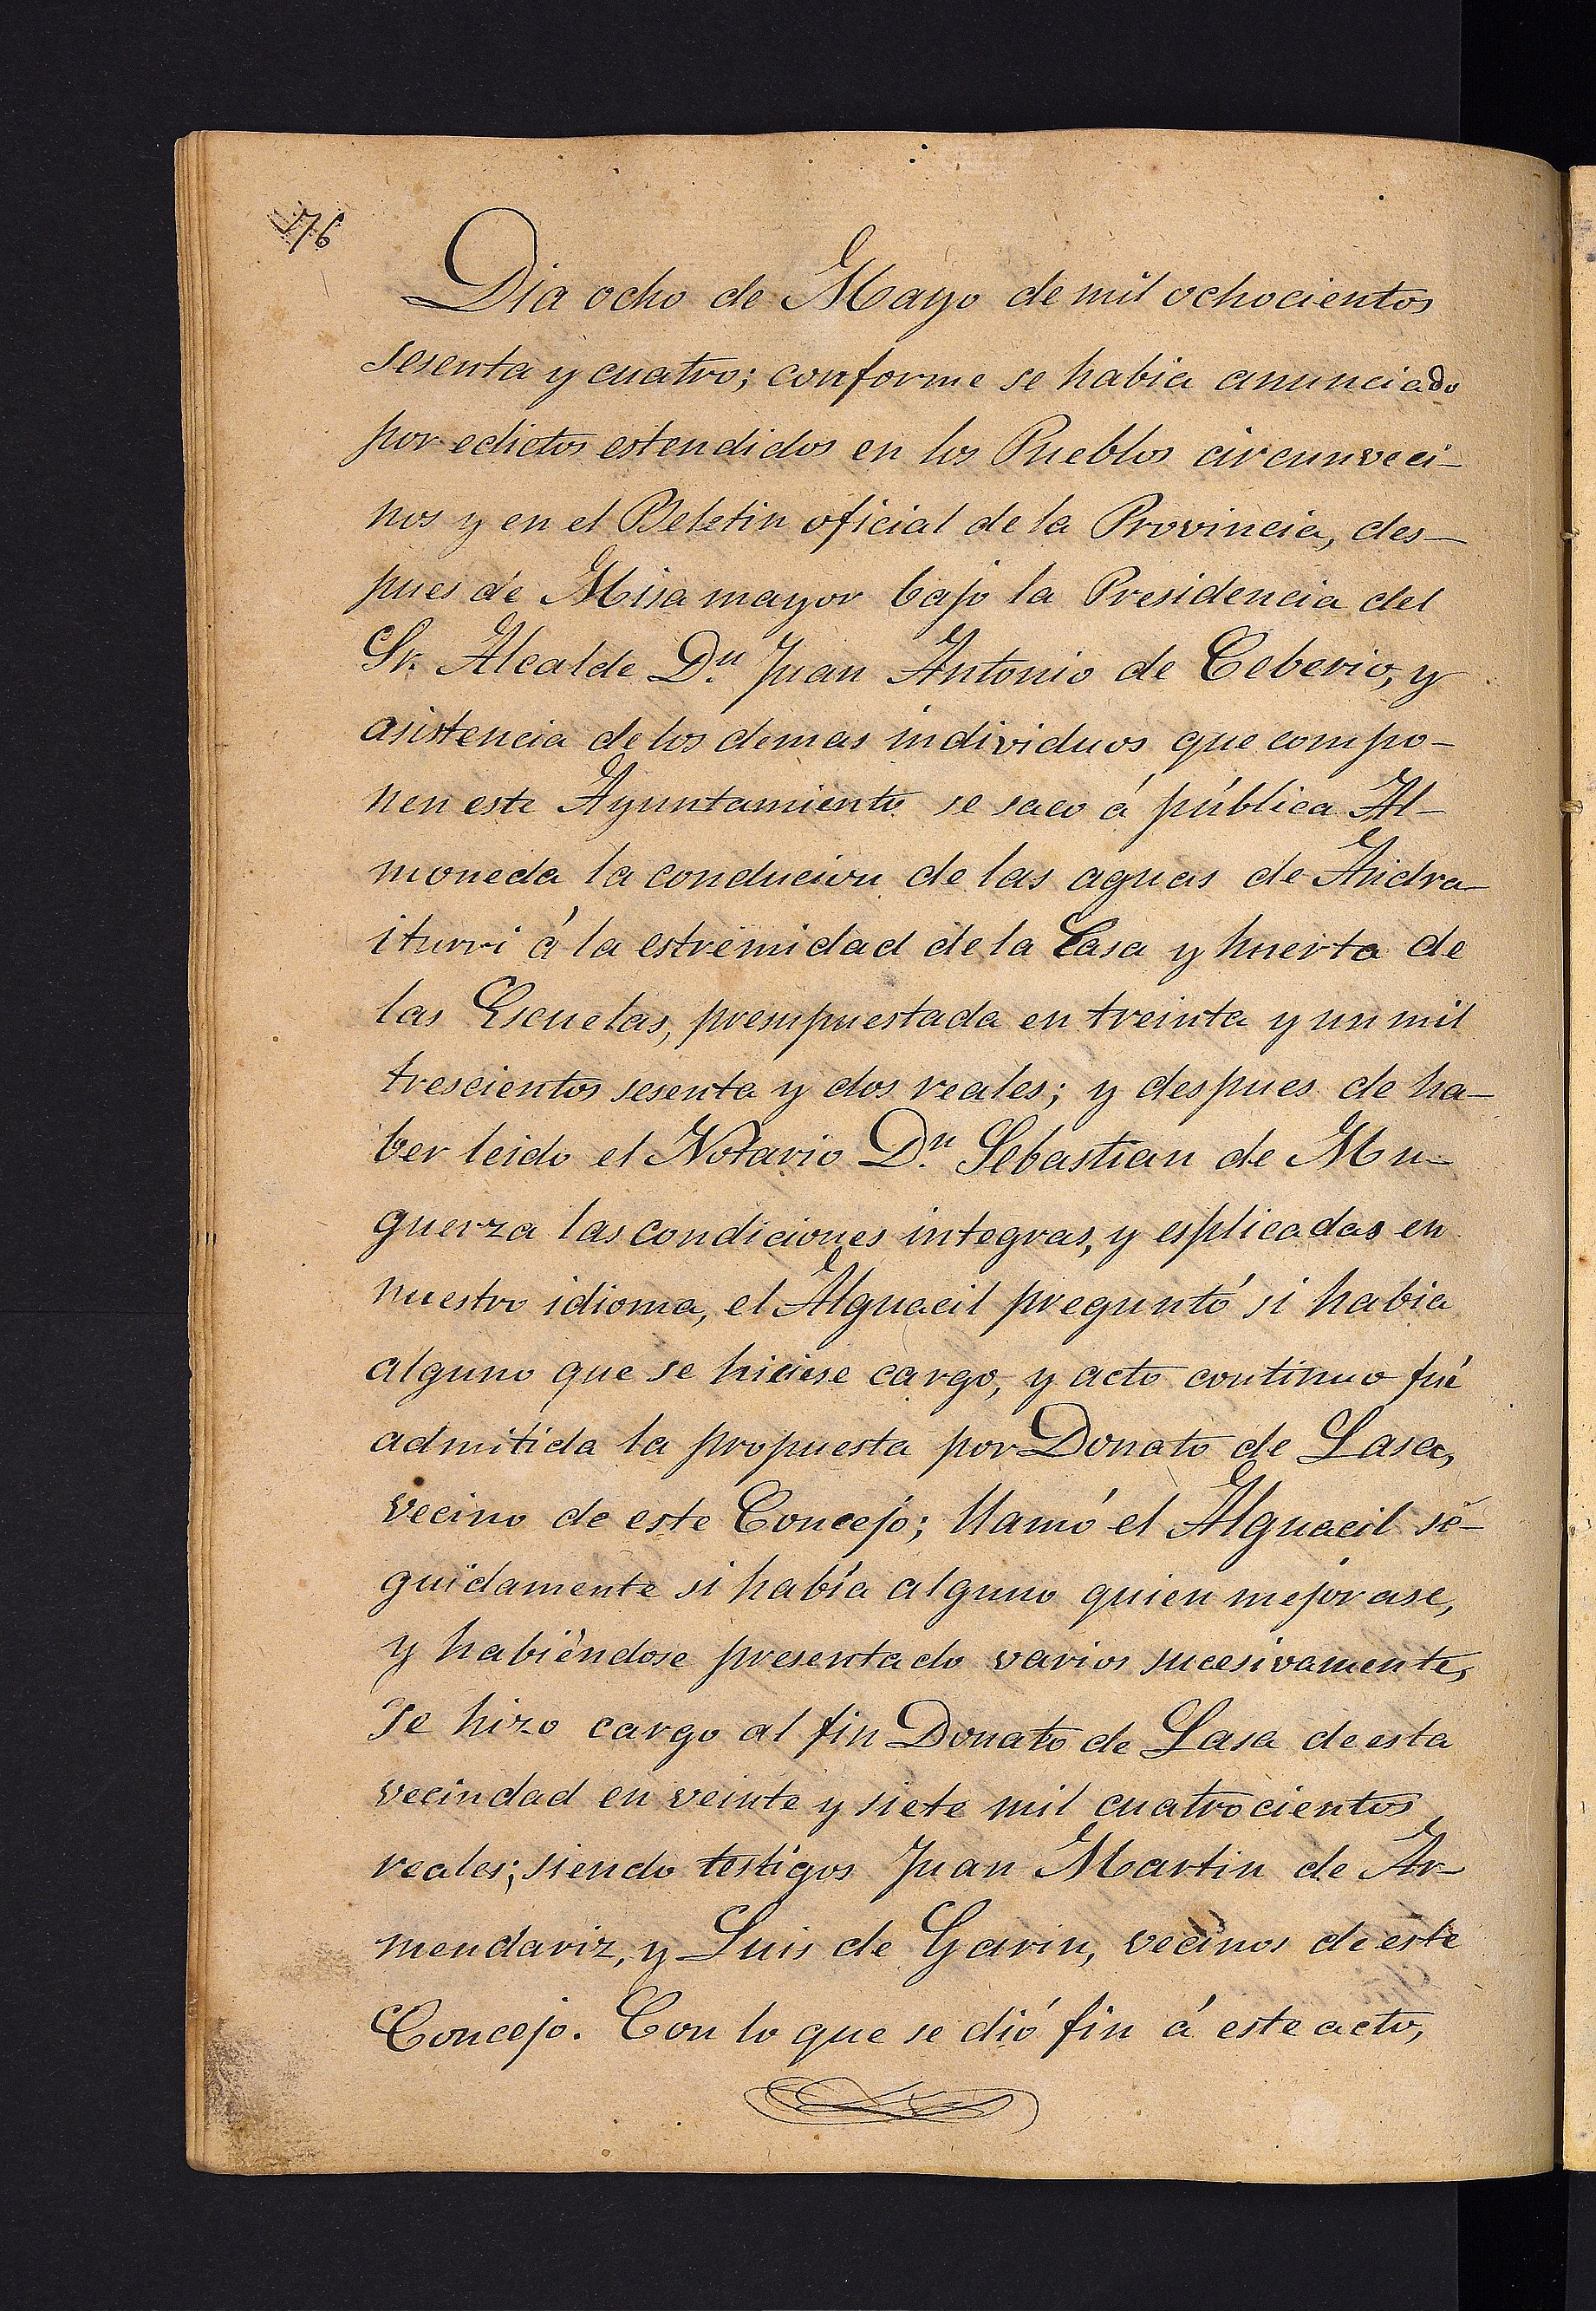 76
Dia ocho de Mayo de mil ochocientos
sesenta y cuatro; conforme se habia anunciado
por edictos estendidos en los Pueblos circunveci-
nos y en el Beletin oficial de la Provincia, des-
pues de Misa mayor bajo la Presidencia del
Sr. Alcalde D.n Juan Antonio de Ceberio, y
asistencia de los demas individuos que compo-
nen este Ayuntamiento se saco á pública Al-
moneda la conducion de las aguas de Andra-
iturri á la estremidad de la Casa y huerta de
las Escuelas, presupuestada en treinta y un mil
trescientos sesenta y dos reales; y despues de ha-
ber leido el Notario D.n Sebastian de Mu-
guerza las condiciones integras, y esplicadas en
nuestro idioma, el Alguacil preguntó si habia
alguno que se hiciese cargo, y acto continuo fué
admitida la propuesta por Donato de Lasa,
vecino de este Concejo; llamó el Alguacil se-
guidamente si había alguno quien mejorase,
y habiéndose presentado varios sucesivamente,
se hizo cargo al fin Donato de Lasa de esta
vecindad en veinte y siete mil cuatrocientos
reales; siendo testigos Juan Martin de Ar-
mendariz, y Luis de Garin, vecinos de este
Concejo. Con lo que se dió fin á este acto,